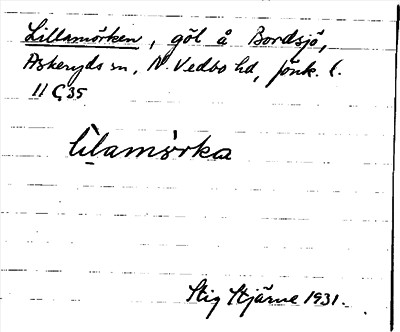 Lillamörken, göl å Bordsjö,
Askeryds sn, N. Vedbo hd, Jönk. l.
II Ç 35
lìlamö̀rka
Stig Stjärne 1931.